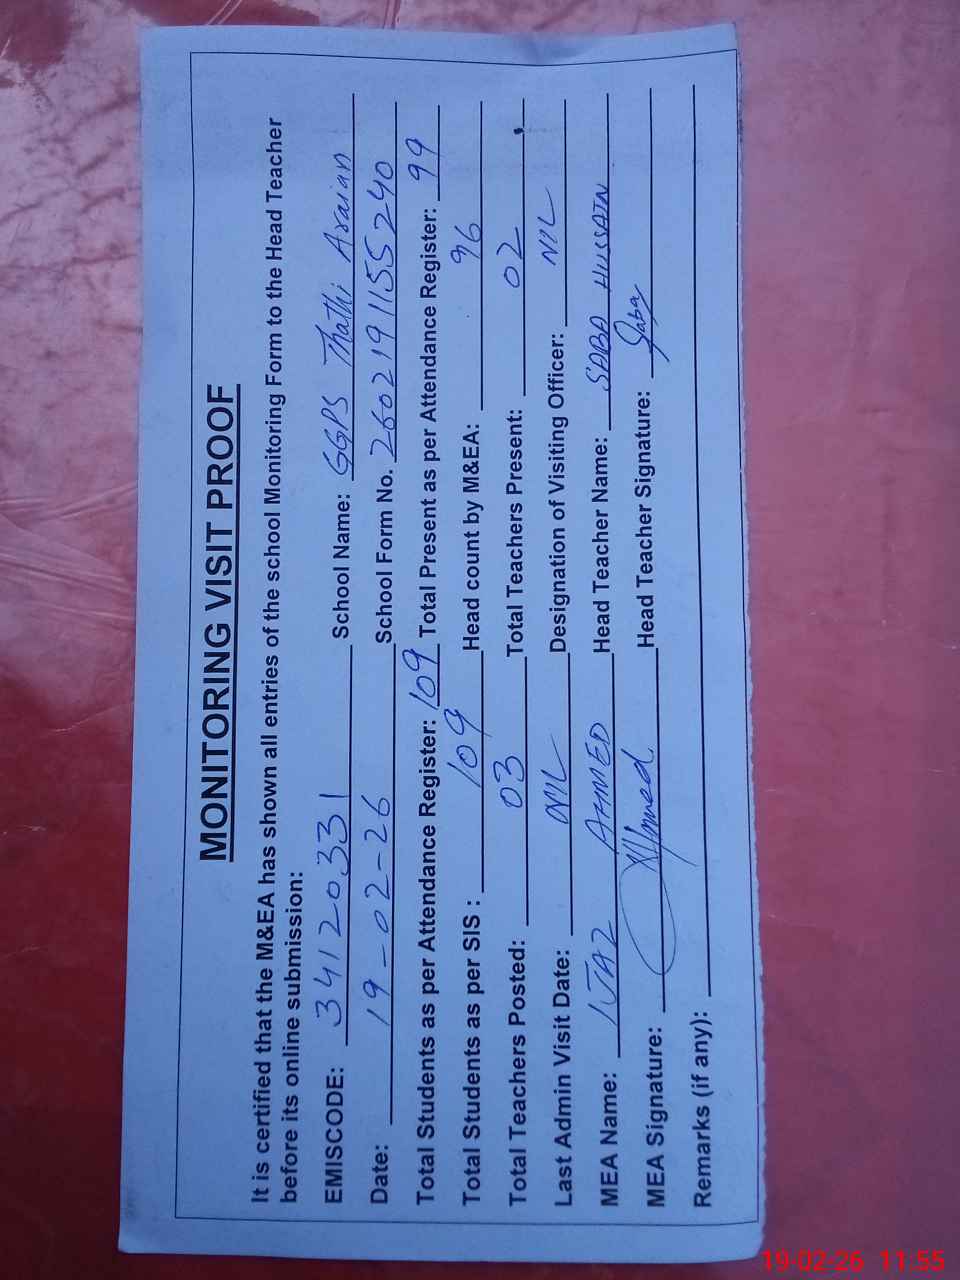 MONITORING VISIT PROOF
It is certified that the M&EA has shown all entries of the school Monitoring Form to the Head Teacher
before its online submission:
EMISCODE: 34120331 School Name: GGPS Thathi Araian
Date: 19-02-26 School Form No. 2602191155240
Total Students as per Attendance Register: 109 Total Present as per Attendance Register: 99
Total Students as per SIS : 109 Head count by M&EA: 96
Total Teachers Posted: 03 Total Teachers Present: 02
Last Admin Visit Date: NIL Designation of Visiting Officer: NIL
MEA Name: IJAZ AHMED Head Teacher Name: SABA HUSSAIN
MEA Signature: Ahmed Head Teacher Signature: Saba
Remarks (if any):
19-02-26 11:55